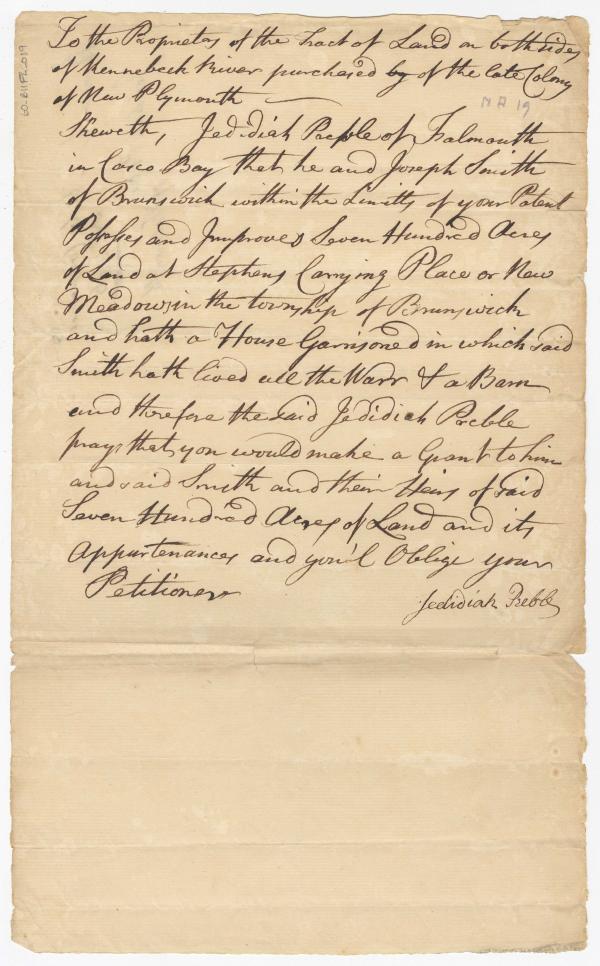 To the Proprietors of the Tract of Land on both sides
of Kennebeck River purchased by of the late Colony
of New Plymouth
Sheweth, Jedidiah Preble of Falmouth
in Casco Bay that he and Joseph Smith
of Brunswick within the Limitts of your Patent
Possesses and Improves Seven Hundred Acres
of Land at Stephens Carrying Place or New
Meadows in the township of Brunswick
and hath a House Garrisoned in which said
Smith hath lived all the Warr & a Barn
and therefore the said Jedidiah Preble
prays that you would make a Grant to him
and said Smith and their Heirs of said
Seven Hundred Acres of Land and its
Appurtenances and you'l Oblige your
Petitioners
Jedidiah Preble